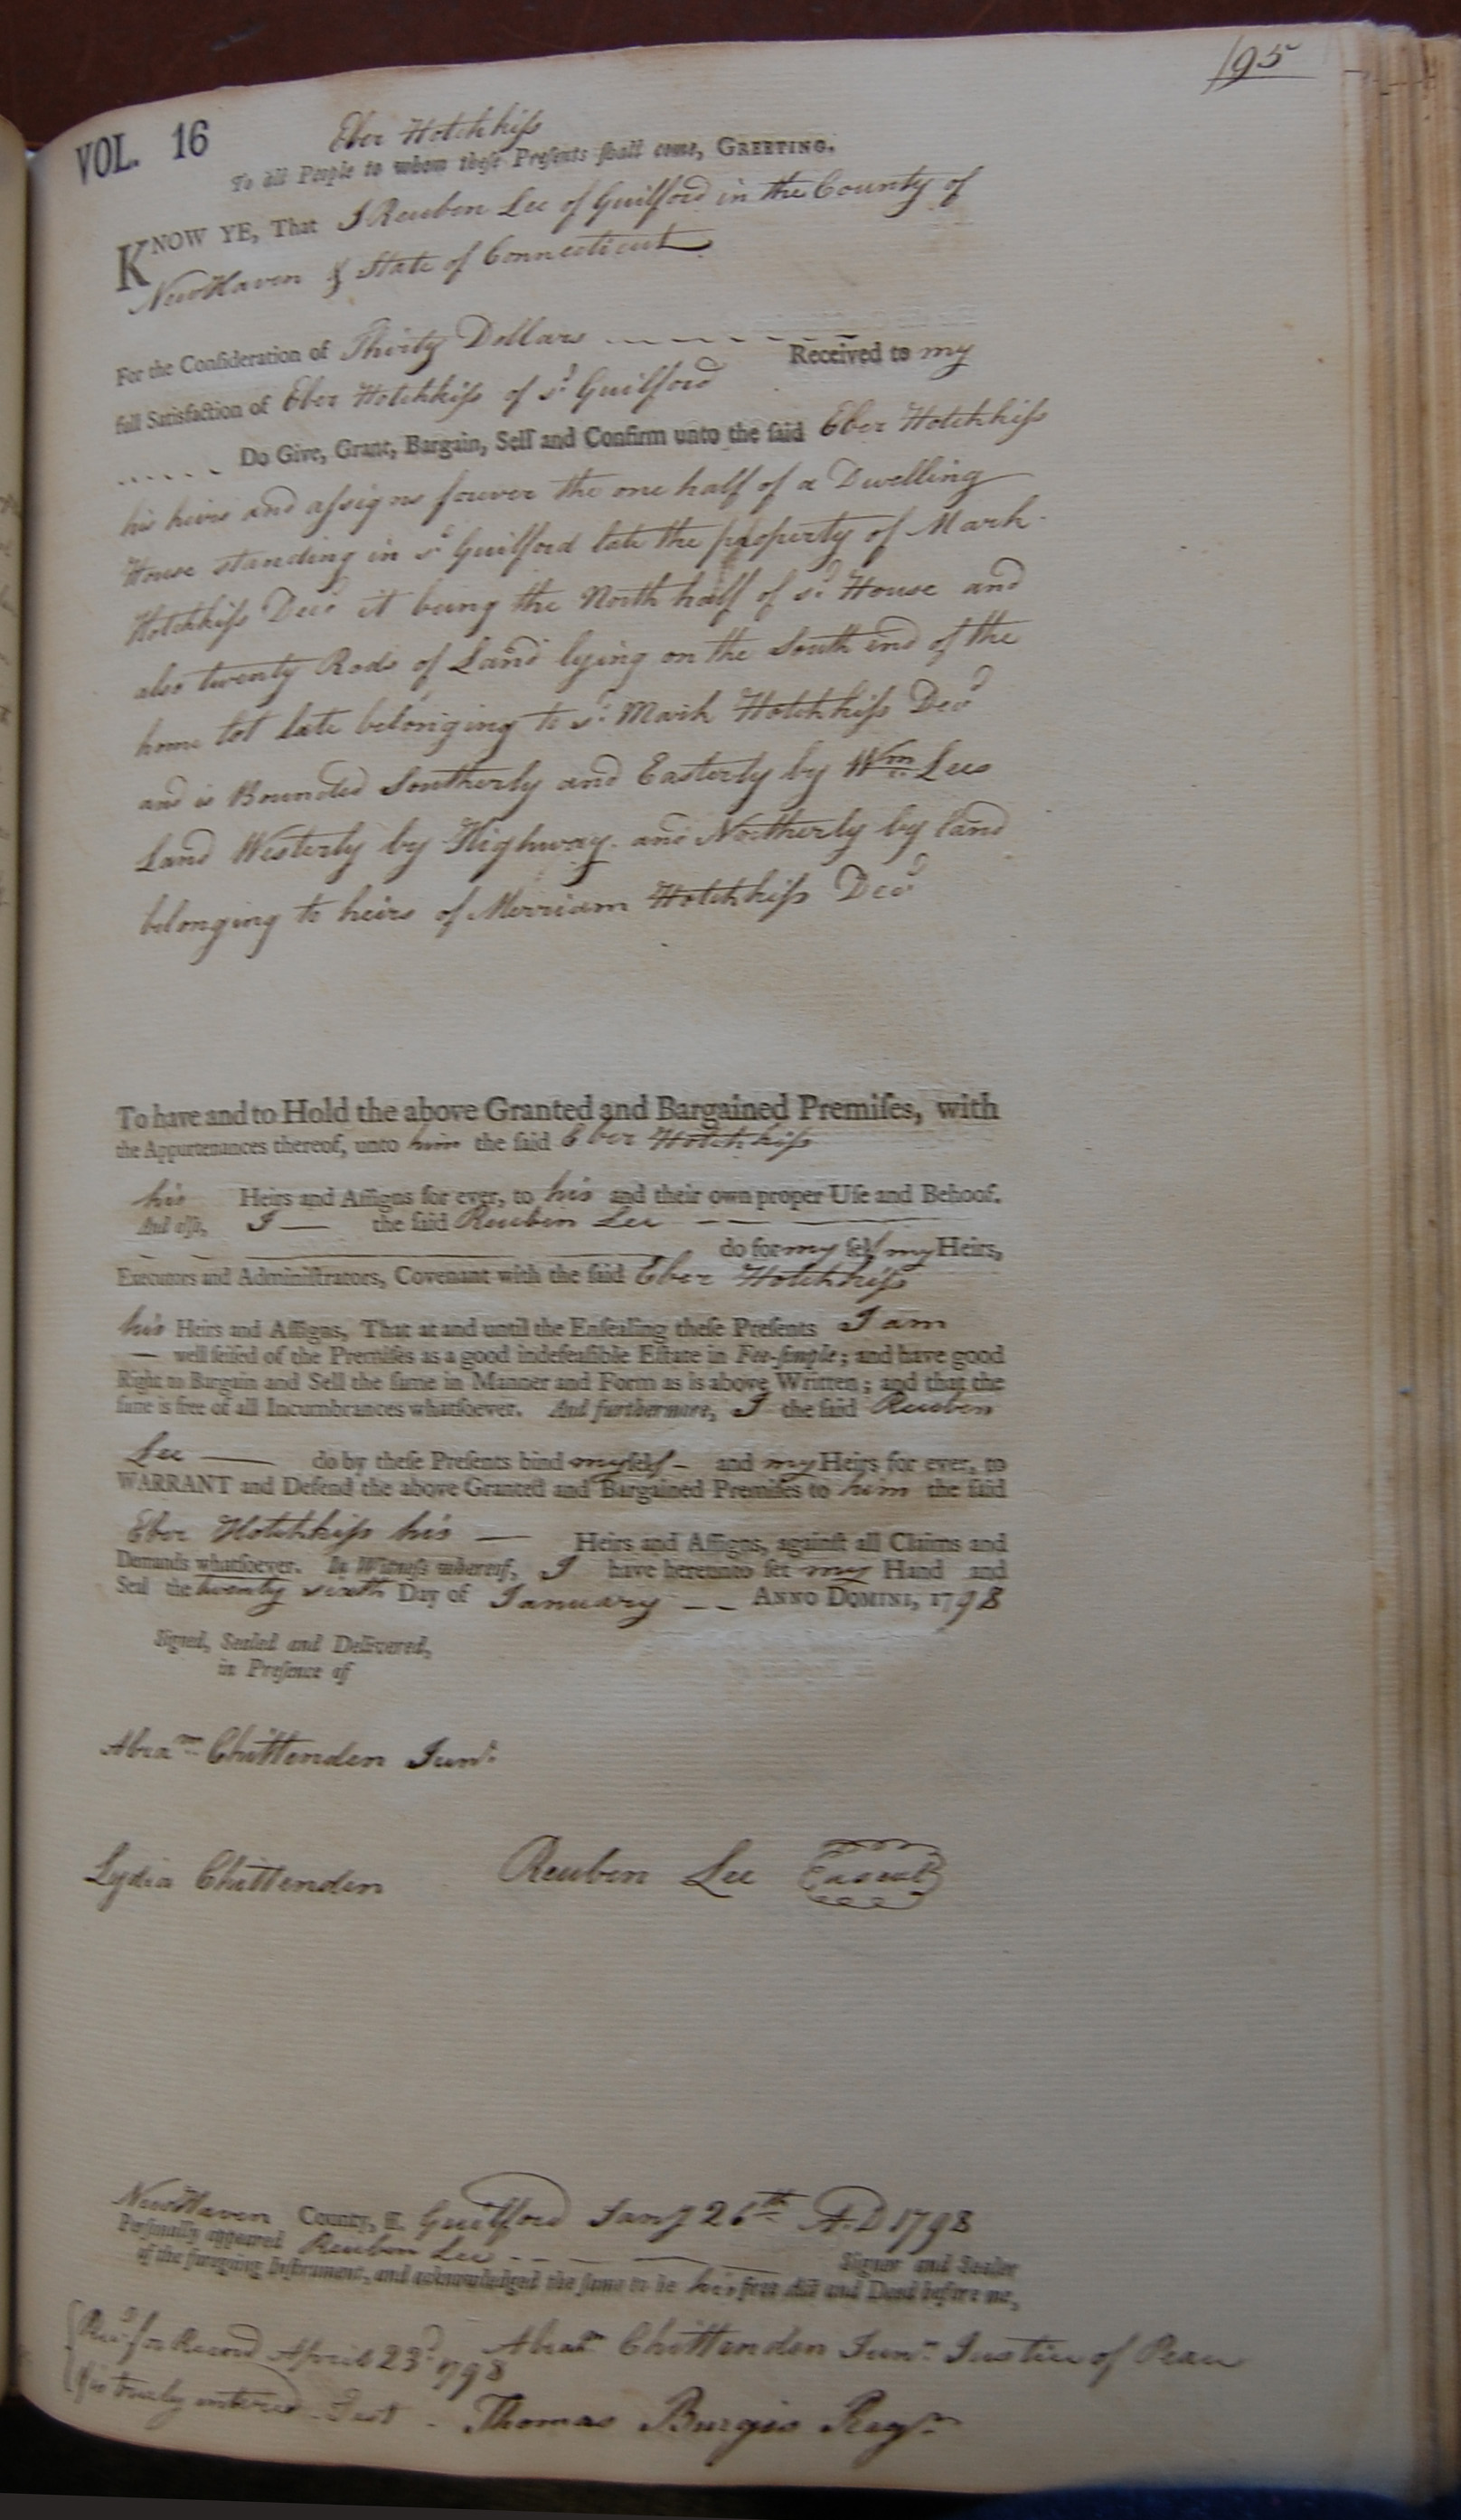 195
VOL. 16
Eber Hotchkiſs
To all People to whom theſe Preſents ſhall come, GREETING.
KNOW YE, That I Reuben Lee of Guilford in the County of
NewHaven & State of Connecticut
For the Conſideration of Thirty Dollars
Received to my
full Satisfaction of Eber Hotchkiſs of sd Guilford
Do Give, Grant, Bargain, Sell and Confirm unto the ſaid Eber Hotchkiſs
his heirs and aſsigns forever the one half of a Dwelling
House standing in sd Guilford late the property of Mark
Hotchkiſs Decd it being the North half of sd House and
also twenty Rods of Land lying on the South end of the
home lot late belonging to sd Mark Hotchkiſs Decd
and is Bounded Southerly and Easterly by Wm Lees
Land Westerly by Highway and Northerly by land
belonging to heirs of Merriam Hotchkiſs Decd
To have and to Hold the above Granted and Bargained Premiſes, with
the Appurtenances thereof, unto him the ſaid Eber Hotchkiſs
his Heirs and Aſſigns for ever, to his and their own proper Uſe and Behoof.
And alſo, I — the ſaid Reubin Lee
do for my ſelf my Heirs,
Executors and Adminiſtrators, Covenant with the ſaid Eber Hotchkiſs
his Heirs and Aſſigns, That at and until the Enſealing theſe Preſents I am
— well ſeiſed of the Premiſes as a good indefeaſible Eſtate in Fee-ſimple; and have good
Right to Bargain and Sell the ſame in Manner and Form as is above Written; and that the
ſame is free of all Incumbrances whatſoever. And furthermore, I the ſaid Reuben
Lee — do by theſe Preſents bind myſelf - and my Heirs for ever, to
WARRANT and Defend the above Granted and Bargained Premiſes to him the ſaid
Eber Hotchkiſs his — Heirs and Aſſigns, againſt all Claims and
Demands whatſoever. In Witneſs whereof, I have hereunto ſet my Hand and
Seal the twenty sixth Day of January -- ANNO DOMINI, 1798
Signed, Sealed and Delivered,
in Preſence of
Abram Chittenden Junr
Lydia Chittenden Reuben Lee & a seal
NewHaven County, ſſ. Guilford Jany 26th A.D 1798
Perſonally appeared Reuben Lee Signer and Sealer
of the foregoing Inſtrument, and acknowledged the ſame to be his free Act and Deed before me,
Abram Chittenden Junr Justice of Peace
Recd for Record April 23d 1798
& is truly entered Test - Thomas Burgis Regr